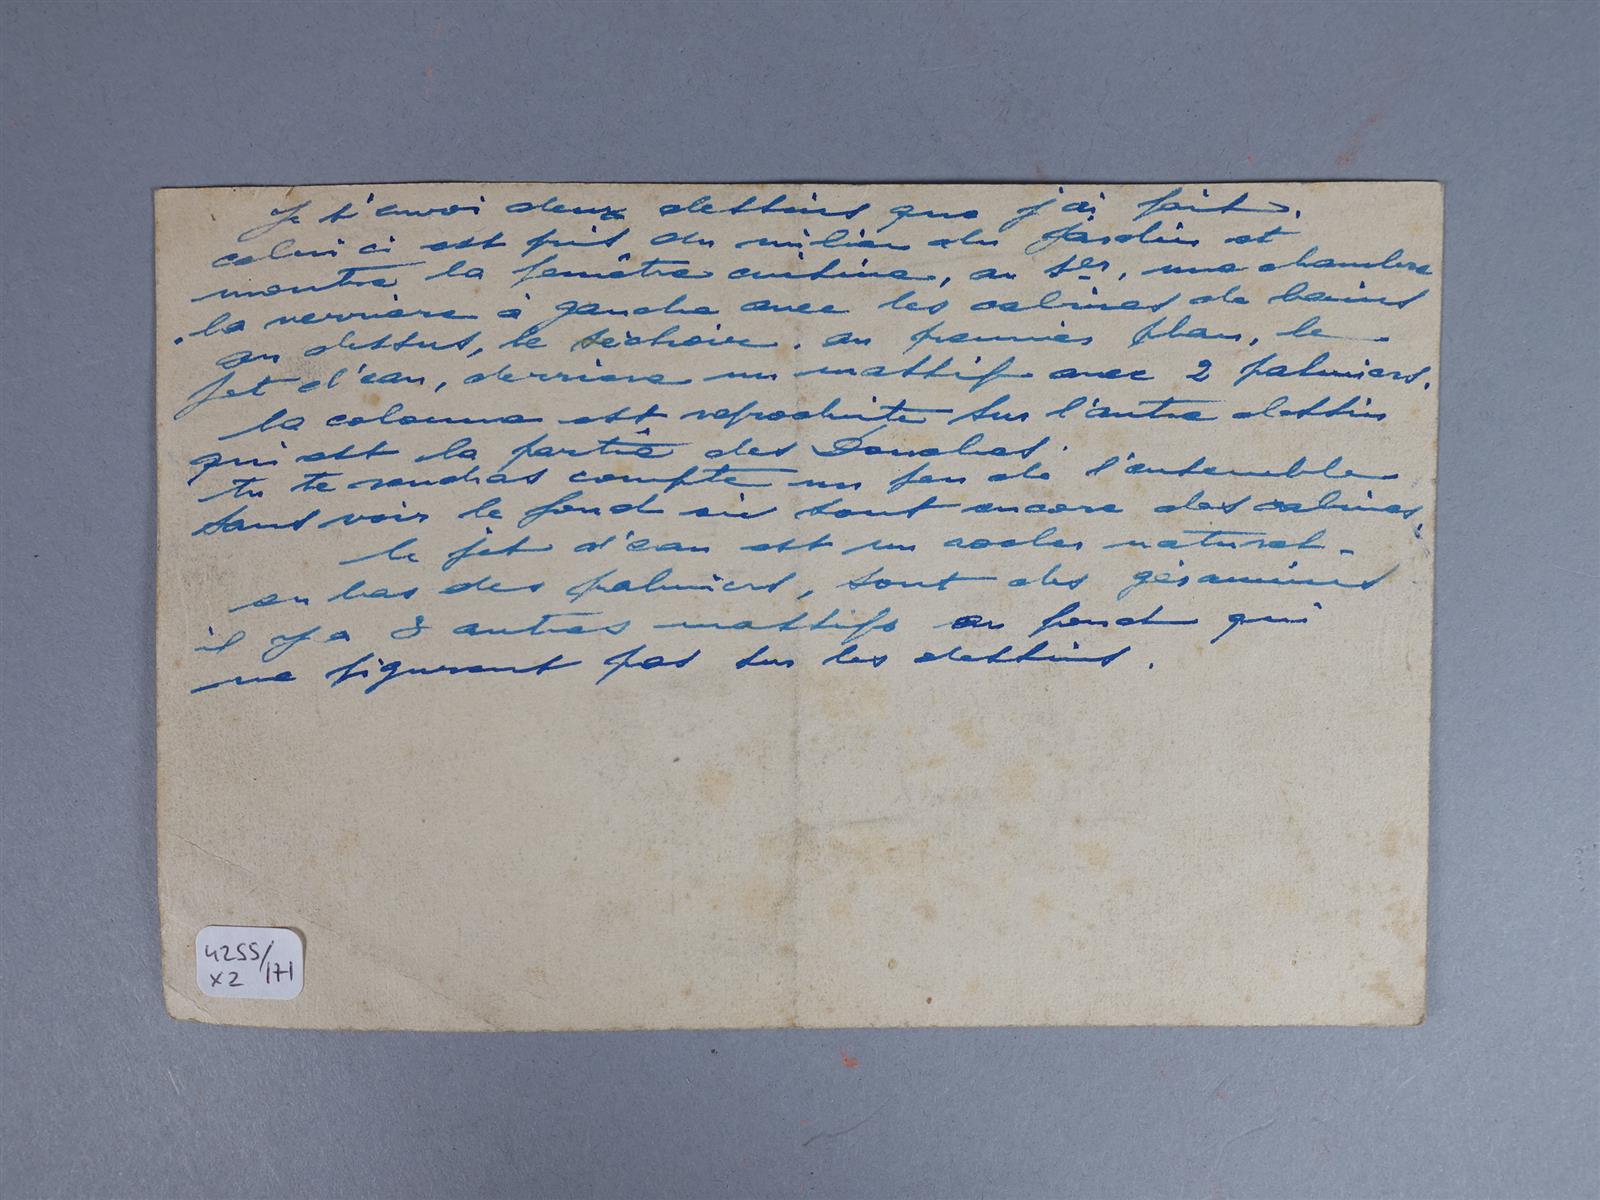 Je t'envoi deux dessins que j'ai fait.
celui ci est pris du milieu du Jardin et
montre la fenêtre cuisine, au 1er, une chambre
la verrière à gauche avec les cabines de bains
au dessus, le séchoir. au premier plan, le
jet d'eau, derrière un massif avec 2 palmiers.
la colonne est reproduite sur l'autre dessin
qui est la partie des Douches.
tu te rendras compte un peu de l'ensemble
sans voir le fond où sont encore des cabines
le jet d'eau est un rocher naturel.
au bas des palmiers, sont des géraniums
il y a 3 autres massifs au fond qui
ne figurent pas sur les dessins.
4255/
x2 /171